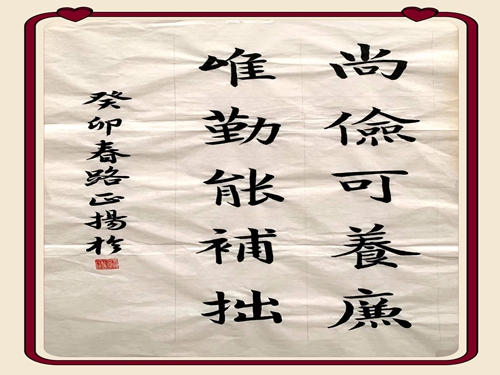 尚儉可養廉
唯勤能補拙
癸卯春路正揚於